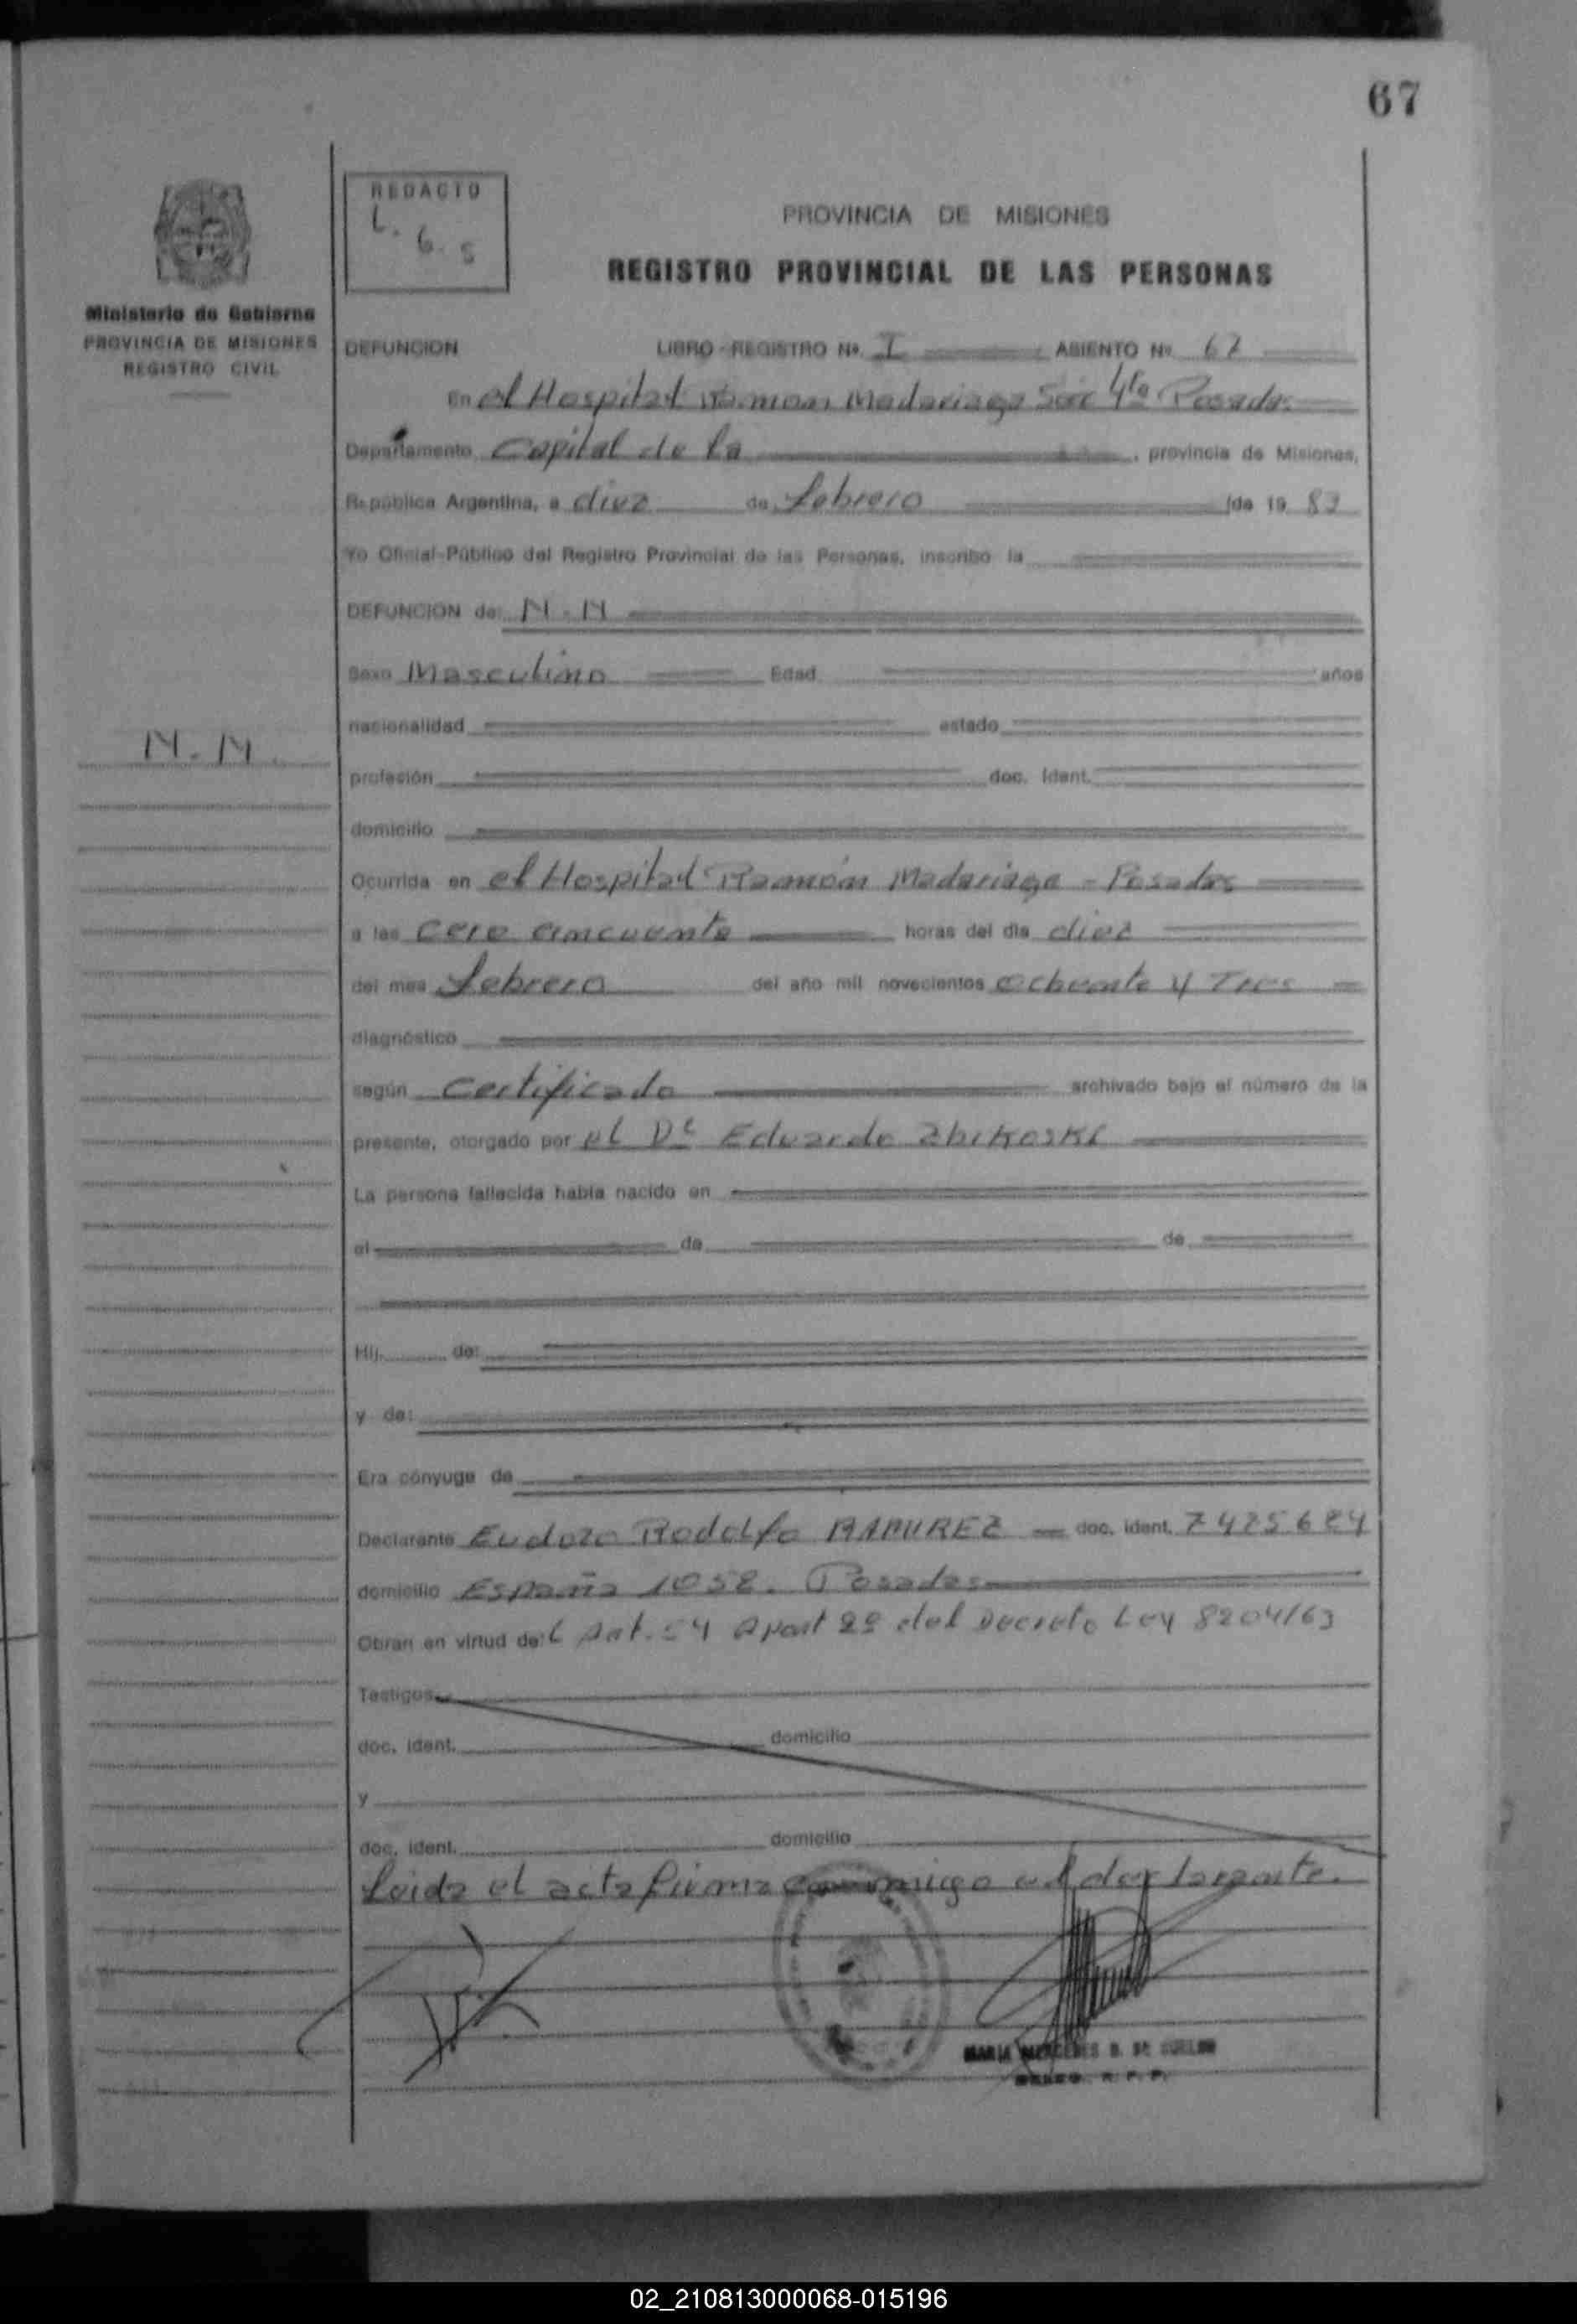 67
REDACTO
L. G. S
PROVINCIA DE MISIONES
REGISTRO PROVINCIAL DE LAS PERSONAS
Ministerio de Gobierno
PROVINCIA DE MISIONES
REGISTRO CIVIL
DEFUNCION LIBRO-REGISTRO Nº. I ASIENTO Nº 67
En el Hospital Ramon Madariaga Posadas
Departamento Capital de la , provincia de Misiones,
República Argentina, a diez de febrero de 19 83
Yo Oficial Público del Registro Provincial de las Personas, inscribo la
DEFUNCION de: N.N
Sexo Masculino Edad años
nacionalidad estado
N.N.
profesión doc. ident.
domicilio
Ocurrida en el Hospital Ramón Madariaga - Posadas
a las cero cincuenta horas del día diez
del mes febrero del año mil novecientos ochenta y Tres
diagnóstico
según certificado archivado bajo el número de la
presente, otorgado por el Dr Eduardo
La persona fallecida había nacido en
el de de
Hij de:
y de:
Era cónyuge de
Declarante Eudoro Rodolfo RAMIREZ doc. ident. 7425684
domicilio España 1058. Posadas
Obran en virtud de l Art. 54 Apart 2º del Decreto Ley 8204/63
Testigos
doc. ident. domicilio
y
doc. ident. domicilio
Leida el acta firma conmigo el declarante.
MARIA MERCEDES
R. P. P.
02_210813000068-015196